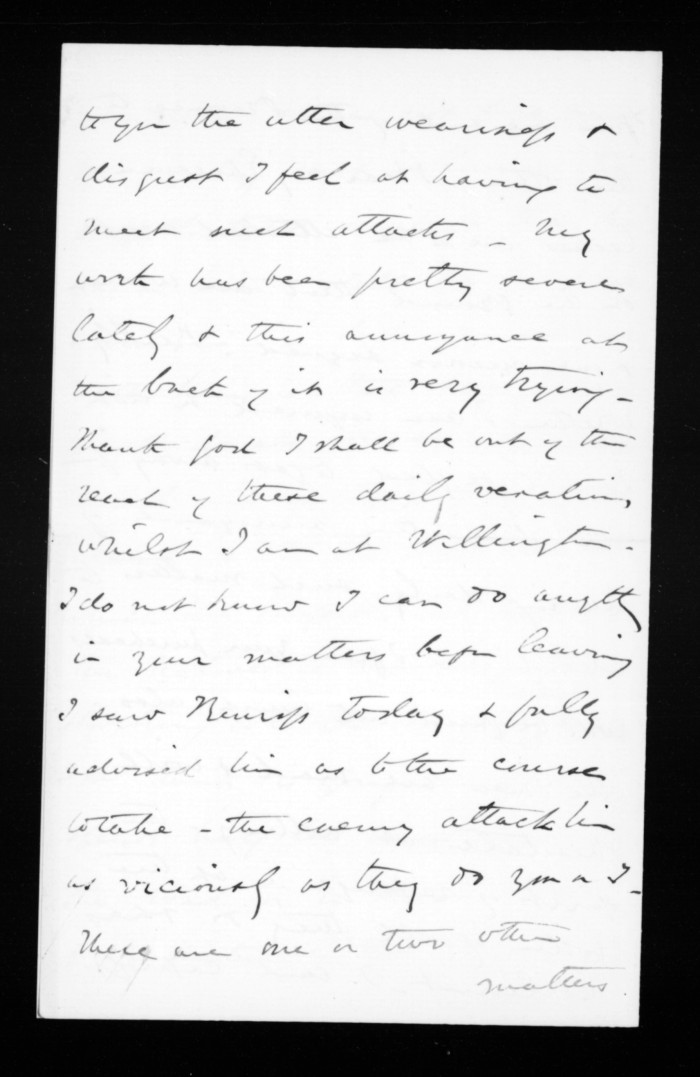 to you the utter weariness &
disgust I feel at having to
meet such attacks - My
work has been pretty severe
lately & this annoyance at
the back of it is very trying -
Thank god I shall be out of the
reach of these daily vexations
whilst I am at Wellington -
I do not know I can do anythg
in your matters before leaving
I saw today & fully
advised him as to the course
to take - the enemy attack him
as viciously as they do you or I -
There are one or two other
matters